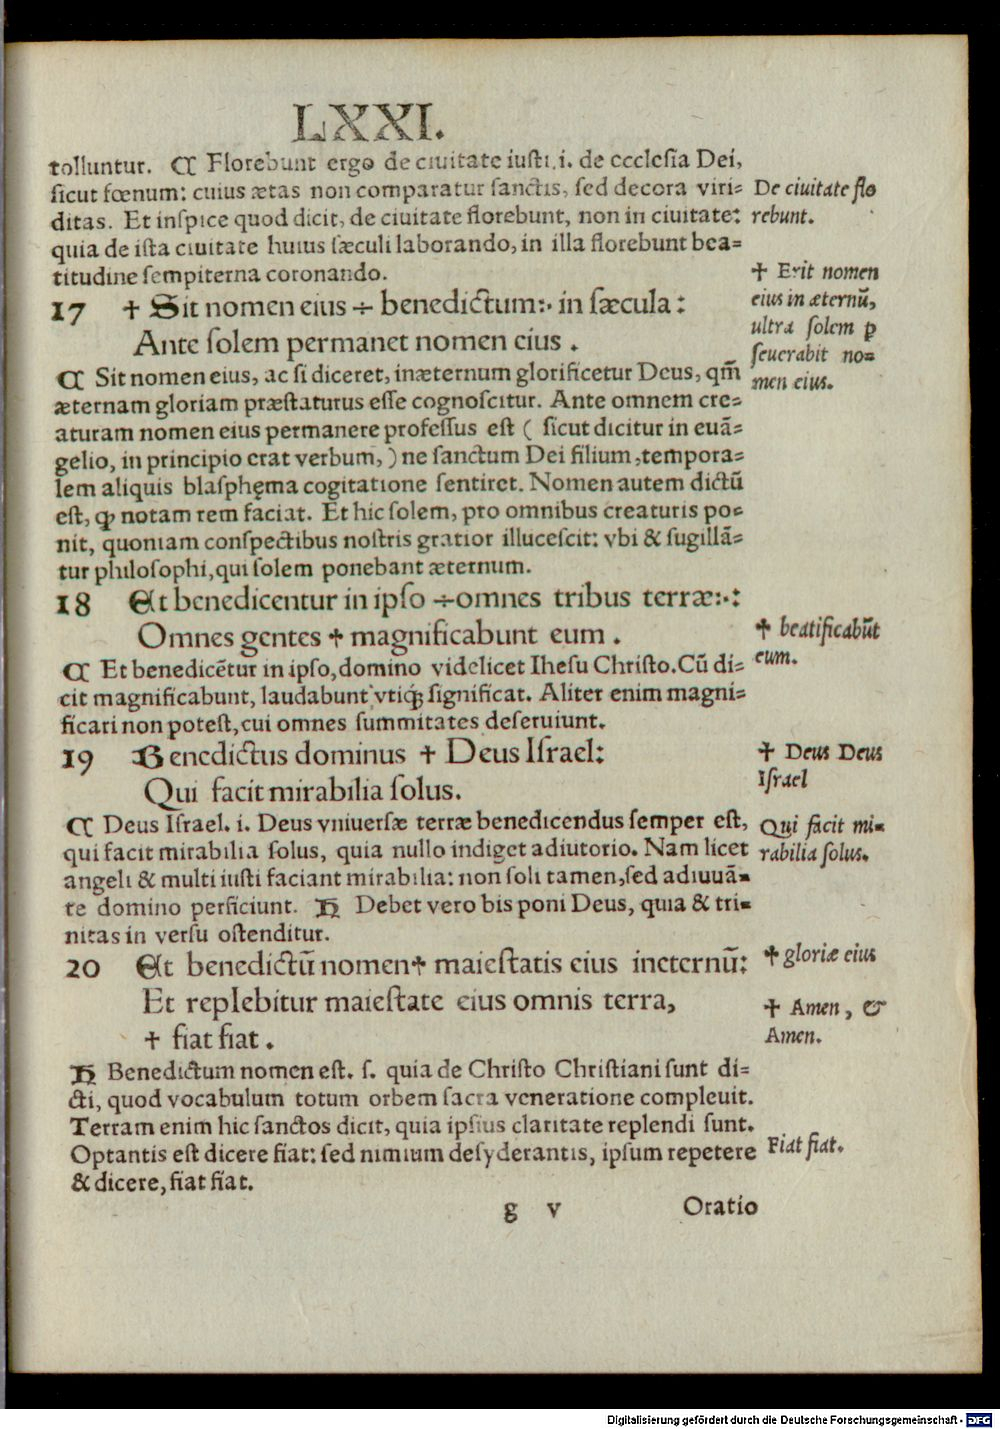 LXXI.
tolluntur. ⁋ Florebunt ergo de ciuitate iusti.i. de ecclesia Dei,
ſicut fœnum: cuius ætas non comparatur ſanctis, ſed decora viri-
ditas. Et inſpice quod dicit, de ciuitate florebunt, non in ciuitate:
quia de iſta ciuitate huius ſæculi laborando, in illa florebunt bea-
titudine ſempiterna coronando.
De ciuitate flo
rebunt.
17 † Sit nomen eius ÷ benedictum:· in ſæcula:
Ante ſolem permanet nomen eius.
† Erit nomen
eius in æternū,
ultra ſolem ꝑ
ſeuerabit no-
men eius.
⁋ Sit nomen eius, ac ſi diceret, inæternum glorificetur Deus, qm̄
æternam gloriam præſtaturus eſſe cognoſcitur. Ante omnem cre-
aturam nomen eius permanere profeſſus eſt ( ſicut dicitur in euā-
gelio, in principio erat verbum, ) ne ſanctum Dei filium, tempora-
lem aliquis blaſphęma cogitatione ſentiret. Nomen autem dictū
eſt, ꝙ notam rem faciat. Et hic ſolem, pro omnibus creaturis po-
nit, quoniam conſpectibus noſtris gratior illuceſcit: vbi & ſugillā-
tur philoſophi, qui ſolem ponebant æternum.
18 Et benedicentur in ipſo ÷omnes tribus terræ:·:
Omnes gentes † magnificabunt eum.
† beatificabūt
eum.
⁋ Et benedicētur in ipſo, domino videlicet Iheſu Chriſto. Cū di-
cit magnificabunt, laudabunt vtiq́ꝫ ſignificat. Aliter enim magni-
ficari non poteſt, cui omnes ſummitates deſeruiunt.
19 Benedictus dominus † Deus Iſrael:
Qui facit mirabilia ſolus.
† Deus Deus
Iſrael
⁋ Deus Iſrael. i. Deus vniuerſæ terræ benedicendus ſemper eſt,
qui facit mirabilia ſolus, quia nullo indiget adiutorio. Nam licet
angeli & multi iuſti faciant mirabilia: non ſoli tamen, ſed adiuuā-
te domino perficiunt. H Debet vero bis poni Deus, quia & tri-
nitas in verſu oſtenditur.
Qui facit mi-
rabilia ſolus.
20 Et benedictū nomen† maieſtatis eius ineternū:
Et replebitur maieſtate eius omnis terra,
† fiat fiat.
† gloriæ eius
† Amen, &
Amen.
H Benedictum nomen eſt. ſ. quia de Chriſto Chriſtiani ſunt di-
cti, quod vocabulum totum orbem ſacra veneratione compleuit.
Terram enim hic ſanctos dicit, quia ipſius claritate replendi ſunt.
Optantis eſt dicere fiat: ſed nimium deſyderantis, ipſum repetere
& dicere, fiat fiat.
Fiat fiat.
g v Oratio
Digitalisierung gefördert durch die Deutsche Forschungsgemeinschaft - DFG